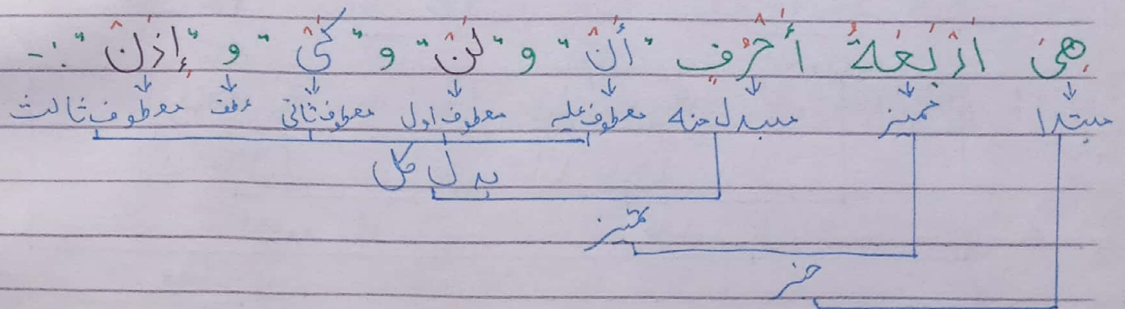 هِيَ اَرْبَعَةُ أَحْرُفٍ "أَنْ" و "لَنْ" و "كَيْ" و "إِذَنْ" :-
مبتدا ممیز مبدل منہ معطوف علیہ معطوف اول معطوف ثانی عطف معطوف ثالث
بدل کل
تمیز
خبر